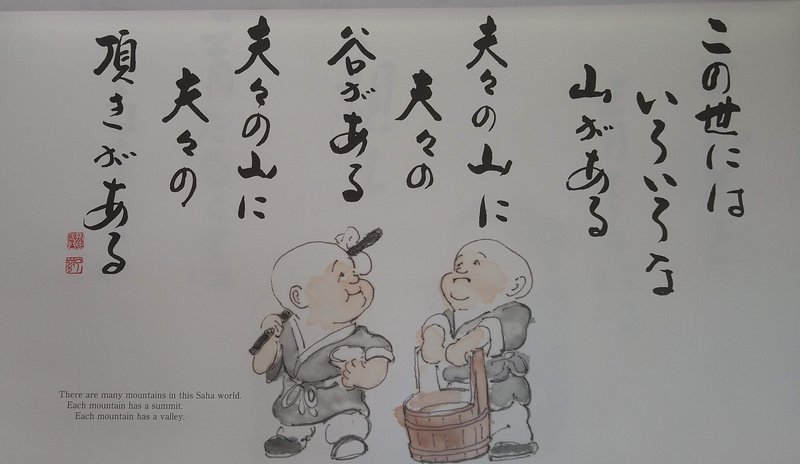 この世には
いろいろな
山がある
夫々の山に
夫々の
谷がある
夫々の山に
夫々の
頂きがある
There are many mountains in this Saha world.
Each mountain has a summit.
Each mountain has a valley.